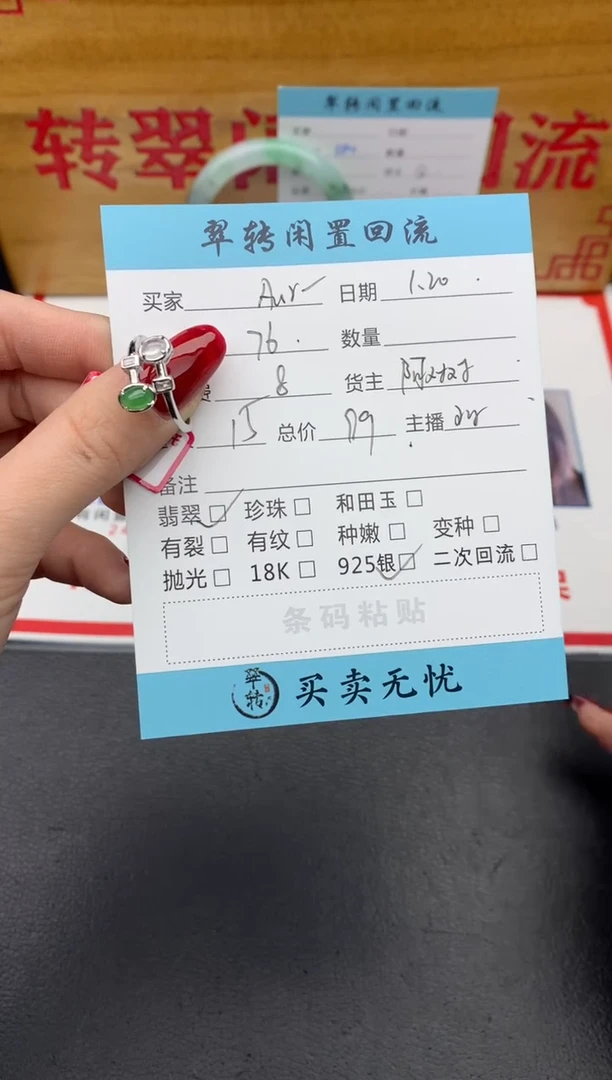 翠转闲置回流
转翠闲 回流
翠转闲置回流
买家 Aur 日期 1.20
76. 数量
8 货主
15 总价 79 主播
备注
翡翠 珍珠 和田玉
有裂 有纹 种嫩 变种
抛光 18K 925银 二次回流
条码粘贴
翠转 买卖无忧